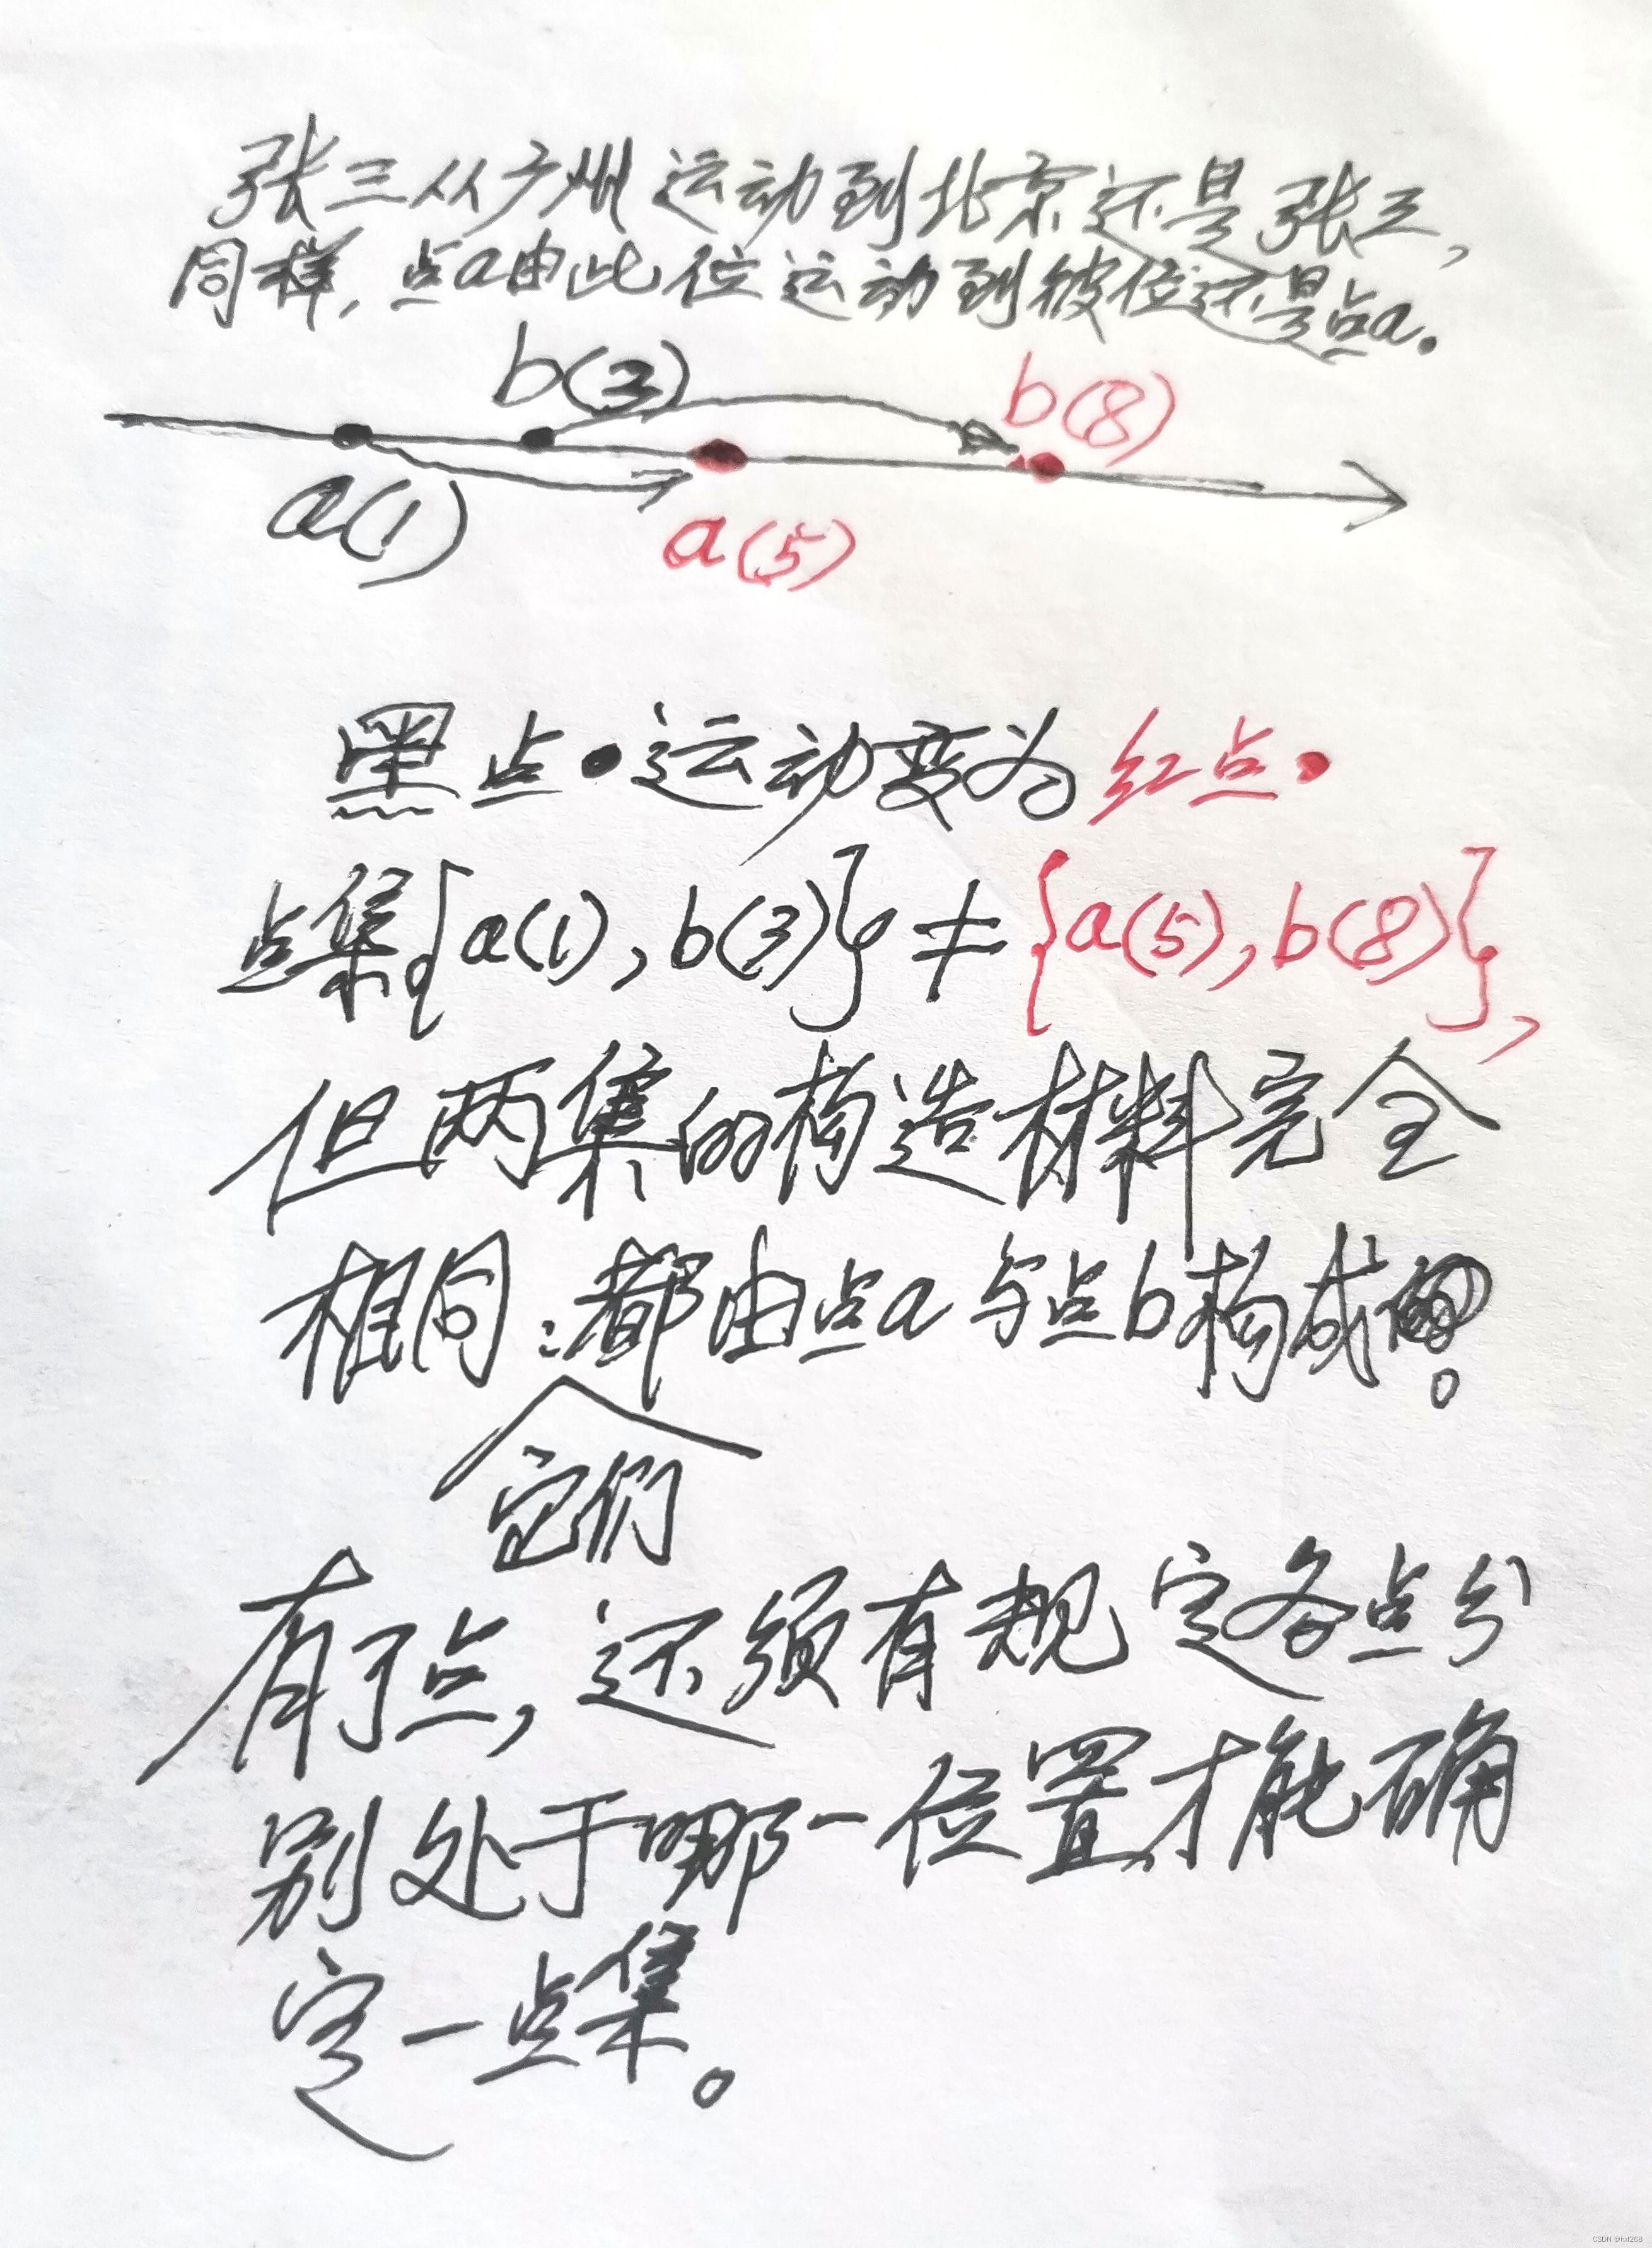 张三从广州运动到北京还是张三,
同样,点a由此位运动到彼位还是点a.
b(3)
b(8)
a(1)
a(5)
黑点•运动变为红点•
点集{a(1),b(3)}≠{a(5),b(8)},
但两集的构造材料完全
相同:都由点a与点b构成。
它们
有了点,还须有规定各点分
别处于哪一位置才能确
定一点集。
CSDN @hxl268